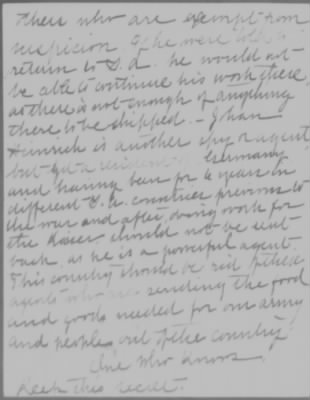 there who are exempt from
suspicion. If he were to
return to S.A. he would not
be able to continue his work there,
as there is not enough of anything
there to be shipped. - Johan
Heinrich is another spy or agent
but is a resident of Germany
and having been for 6 years in
different S.A. countries previous to
the war and after, doing work for
the Kaiser should not be sent
back, as he is a powerful agent.
This country should be rid of these
agents who are sending the food
and goods needed for our army
and people out of the country.
One who knows.
Keep this secret.